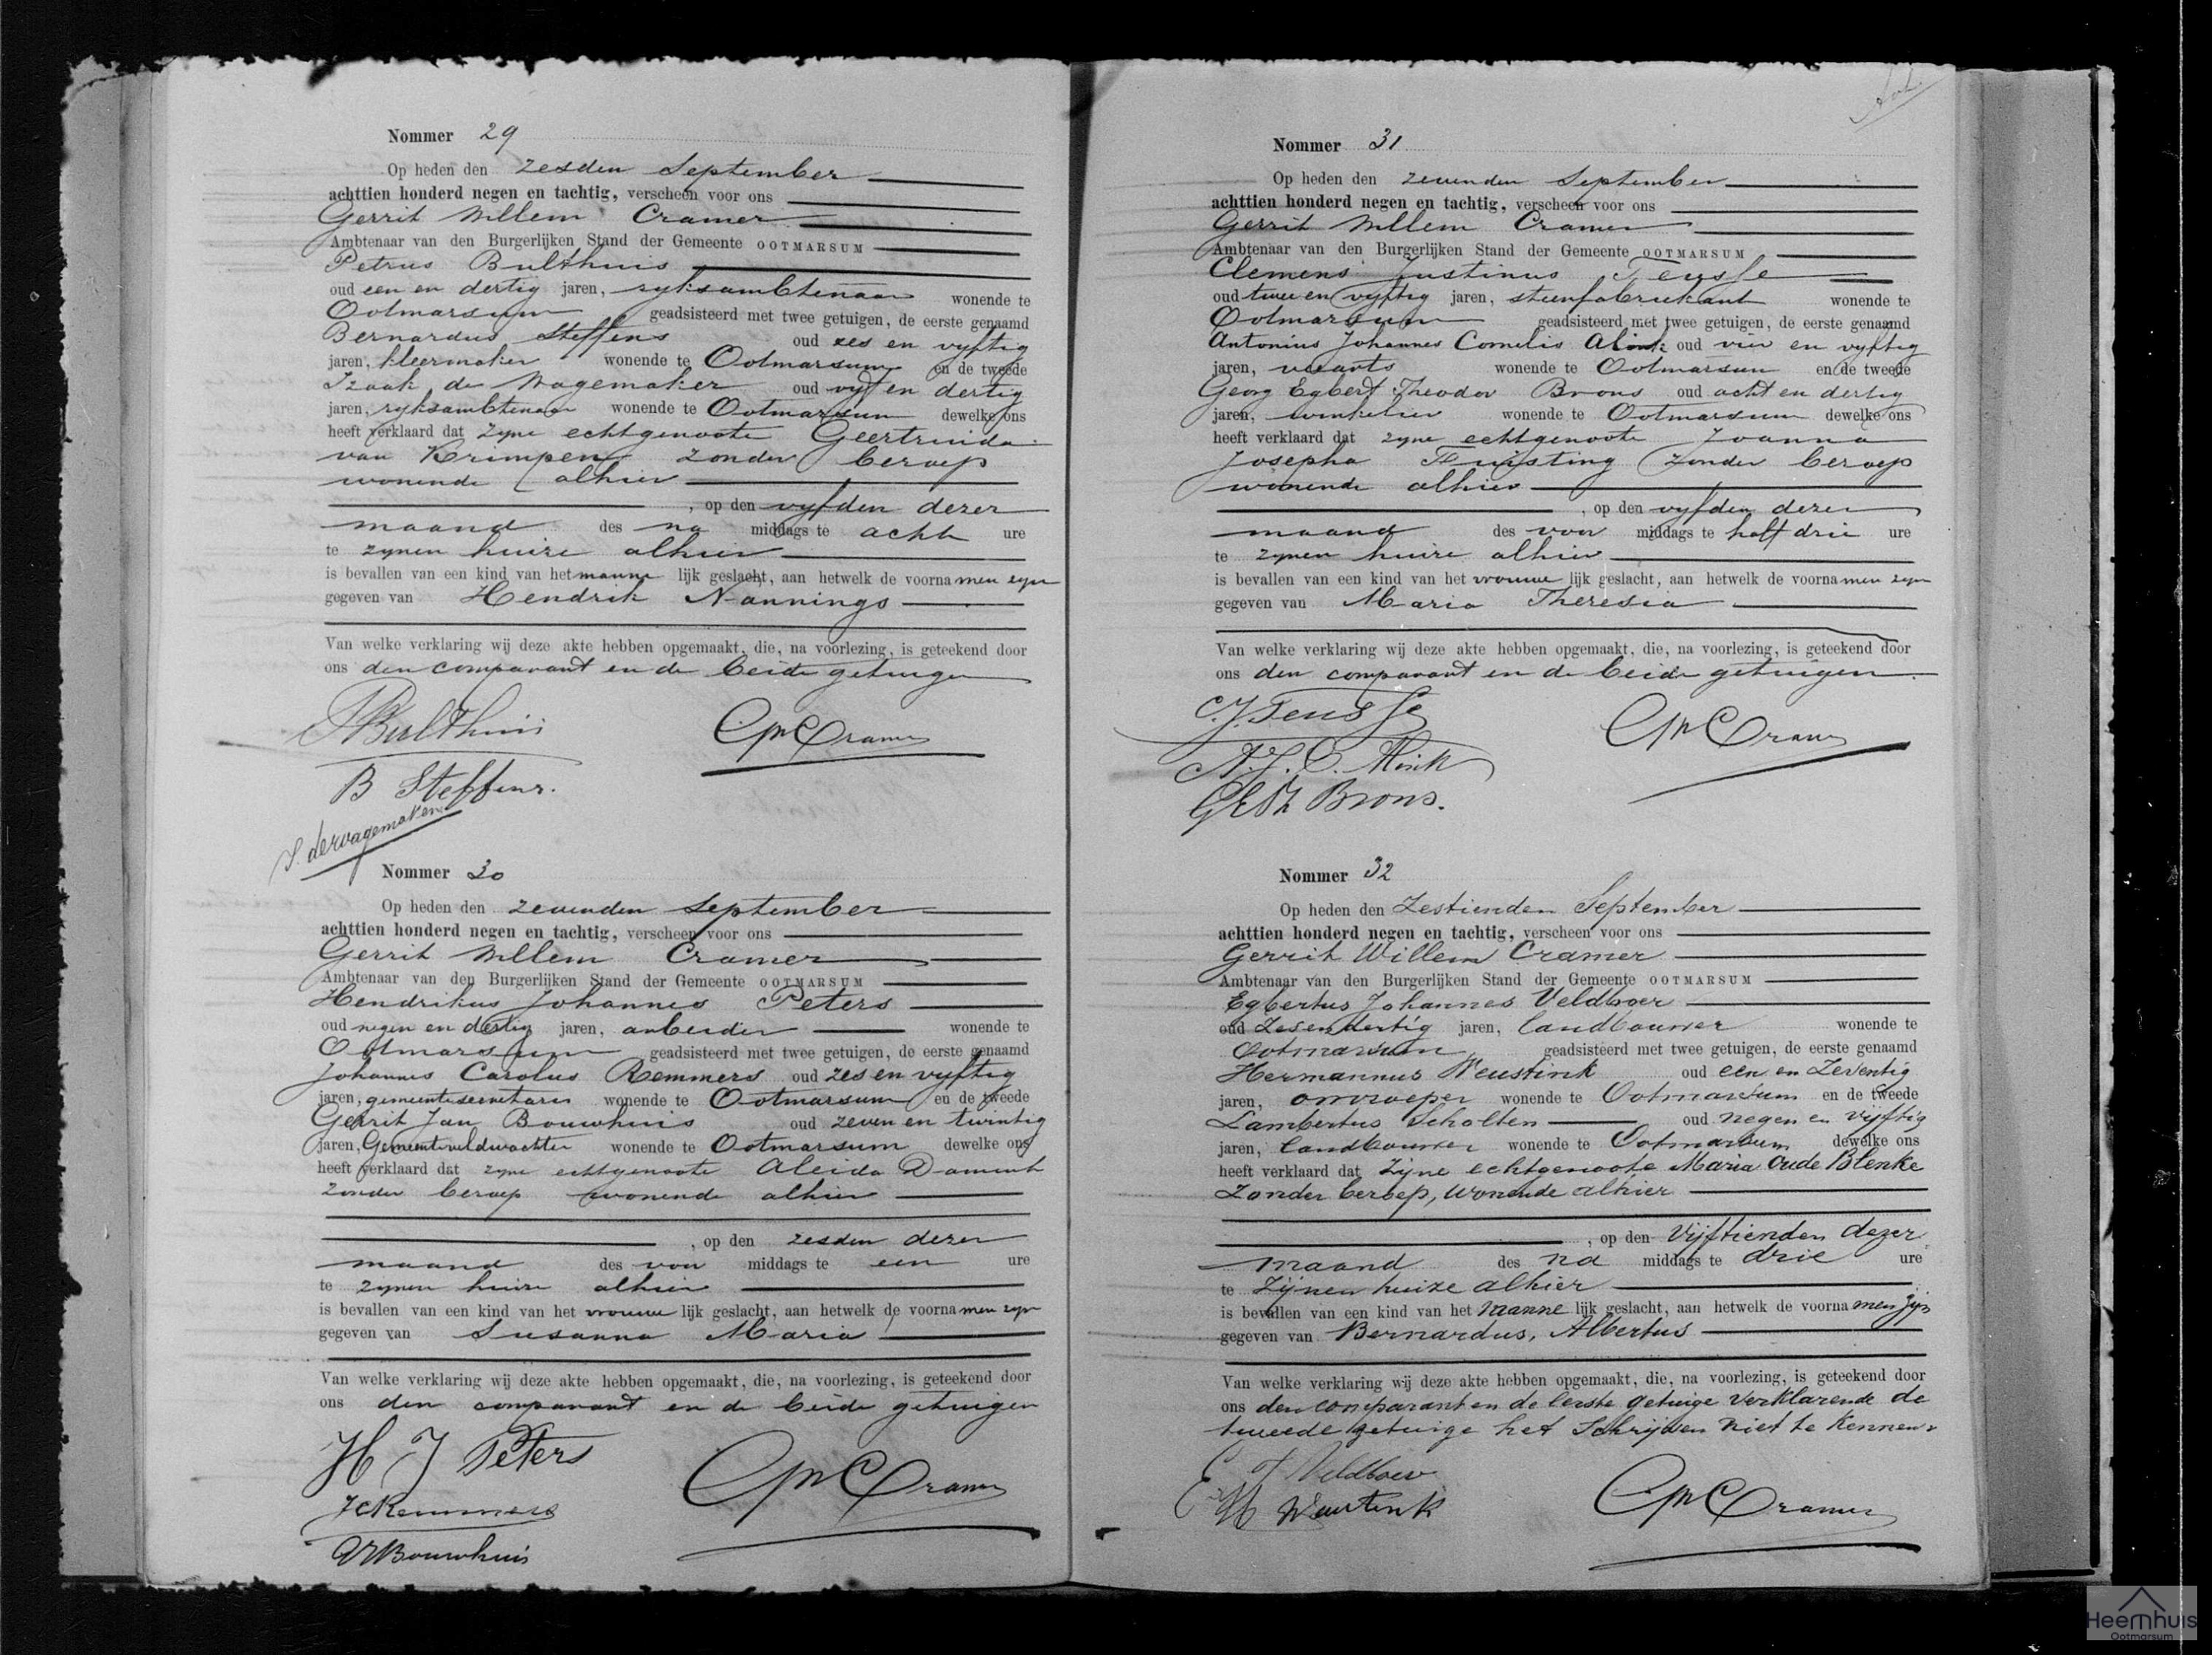 Nommer 29
Op heden den zesden September
achttien honderd negen en tachtig, verscheen voor ons
Gerrit Willem Cramer
Ambtenaar van den Burgerlijken Stand der Gemeente OOTMARSUM
Petrus Bulthuis
oud een en dertig jaren, ryksambtenaar wonende te
Ootmarsum geadsisteerd met twee getuigen, de eerste genaamd
Bernardus Steffens oud zes en vyftig
jaren, kleermaker wonende te Ootmarsum en de tweede
Izaak de Wagemaker oud vyf en dertig
jaren, ryksambtenaar wonende te Ootmarsum dewelke ons
heeft verklaard dat zyne echtgenoote Geertruida
van Krimpen zonder beroep
wonende alhier
, op den vyfden dezer
maand des na middags te acht ure
te zynen huize alhier
is bevallen van een kind van het manne lijk geslacht, aan hetwelk de voorna men zyn
gegeven van Hendrik Nannings
Van welke verklaring wij deze akte hebben opgemaakt, die, na voorlezing, is geteekend door
ons den comparant en de beide getuigen
PBulthuis GWCramer
B Steffens.
I. dewagemaker
Nommer 30
Op heden den zevenden September
achttien honderd negen en tachtig, verscheen voor ons
Gerrit Willem Cramer
Ambtenaar van den Burgerlijken Stand der Gemeente OOTMARSUM
Hendrikus Johannes Peters
oud negen en dertig jaren, arbeider wonende te
Ootmarsum geadsisteerd met twee getuigen, de eerste genaamd
Johannes Carolus Remmers oud zes en vyftig
jaren, gemeentesecretaris wonende te Ootmarsum en de tweede
Gerrit Jan Bouwhuis oud zeven en twintig
jaren, Gemeenteveldwachter wonende te Ootmarsum dewelke ons
heeft verklaard dat zyne echtgenoote Aleida Damink
zonder beroep wonende alhier
, op den zesden dezer
maand des voor middags te een ure
te zynen huize alhier
is bevallen van een kind van het vrouwe lijk geslacht, aan hetwelk de voorna men zyn
gegeven van Susanna Maria
Van welke verklaring wij deze akte hebben opgemaakt, die, na voorlezing, is geteekend door
ons den comparant en de beide getuigen
H J Peters GWCramer
JCRemmers
GJBouwhuis
Nommer 31
Op heden den zevenden September
achttien honderd negen en tachtig, verscheen voor ons
Gerrit Willem Cramer
Ambtenaar van den Burgerlijken Stand der Gemeente OOTMARSUM
Clemens Justinus Teusse
oud twee en vyftig jaren, steenfabriekant wonende te
Ootmarsum geadsisteerd met twee getuigen, de eerste genaamd
Antonius Johannes Cornelis Alink oud vier en vyftig
jaren, veearts wonende te Ootmarsum en de tweede
Georg Egbert Theodor Brons oud acht en dertig
jaren, winkelier wonende te Ootmarsum dewelke ons
heeft verklaard dat zyne echtgenoote Joanna
Josepha Fuisting zonder beroep
wonende alhier
, op den vyfden dezer
maand des voor middags te half drie ure
te zynen huize alhier
is bevallen van een kind van het vrouwe lijk geslacht, aan hetwelk de voorna men zyn
gegeven van Maria Theresia
Van welke verklaring wij deze akte hebben opgemaakt, die, na voorlezing, is geteekend door
ons den comparant en de beide getuigen.
C.J. Teusse GWCramer
A.J.C. Alink
GETh Brons.
Nommer 32
Op heden den Zestienden September
achttien honderd negen en tachtig, verscheen voor ons
Gerrit Willem Cramer
Ambtenaar van den Burgerlijken Stand der Gemeente OOTMARSUM
Egbertus Johannes Veldboer
oud Zesendertig jaren, landbouwer wonende te
Ootmarsum geadsisteerd met twee getuigen, de eerste genaamd
Hermannus Neustink oud een en Zeventig
jaren, omroeper wonende te Ootmarsum en de tweede
Lambertus Scholten oud negen en Vijftig
jaren, landbouwer wonende te Ootmarsum dewelke ons
heeft verklaard dat Zijne echtgenoote Maria Oude Blenke
Zonder beroep, wonende alhier
, op den Vijftienden dezer
maand des na middags te drie ure
te Zijnen huize alhier
is bevallen van een kind van het manne lijk geslacht, aan hetwelk de voorna men zijn
gegeven van Bernardus, Albertus
Van welke verklaring wij deze akte hebben opgemaakt, die, na voorlezing, is geteekend door
ons den comparant en de eerste getuige Verklarende de
tweede getuige het Schrijven niet te kennen
E J Veldboer GWCramer
H Neustink
Heemhuis
Ootmarsum